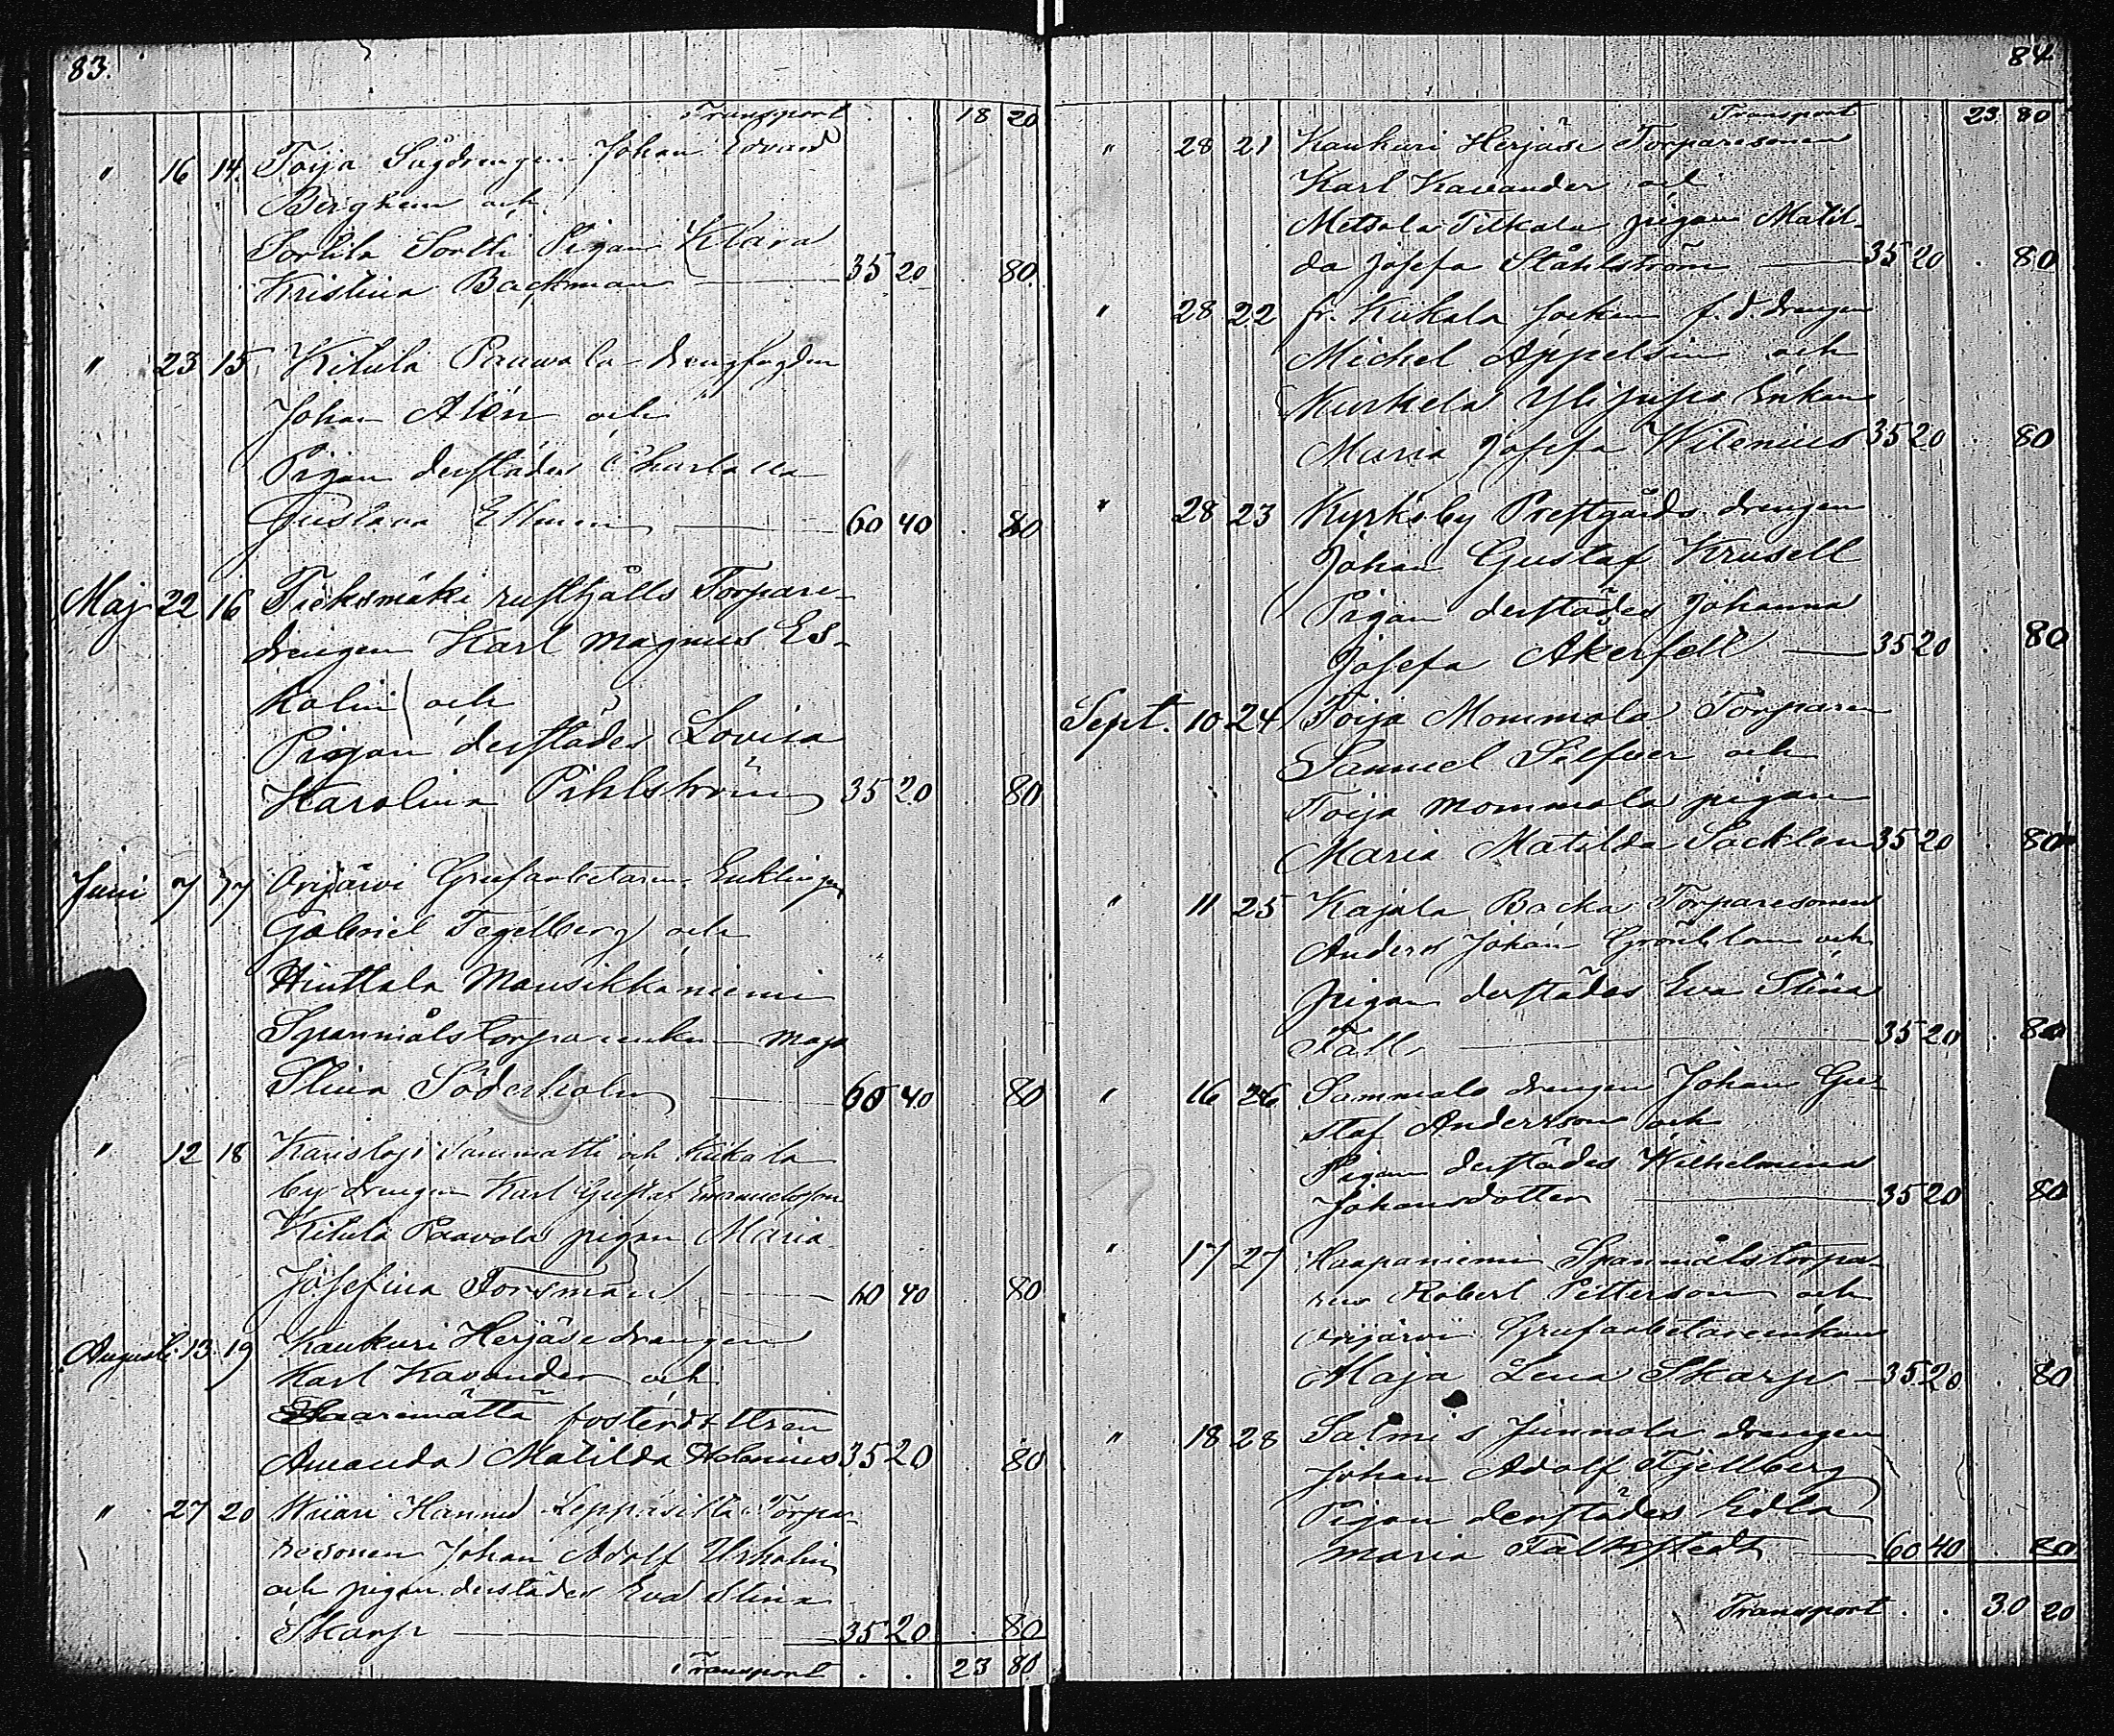 83.
Transport . . 18 20
" 16 14. Toija Sågdrengen Johan Edvard
Berghem och
Sorlila Sortti Pigan Klara
Kristina Backman 35 20 . 80.
" 23 15 Kitula Pauvola drengfogden
Johan Alèn och
Pigan derstädes Charlotta
Gustava Ellmen 60 40 . 80
Maj 22 16 Tieksmäki rusthålls Torpare-
drengen Karl Magnus Es-
kolin och
Pigan derstädes Lovisa
Karolina Pihlström 35 20 80
Juni 7 17 Orijärvi Grufarbetaren Enklingen
Gabriel Tegelberg och
Hinttala Mansikkaniemi
Spanmålstorpareenkan Maja
Stina Söderholm 60 40 80
" 12 18 Karislojo Sammatti och Kiikala
by drengen Karl Gustaf Emanuelsson
Kitula Paavola pigan Maria
Josefina Forsman 60 40 80
Augusti 13 19 Kaukuri Herjäse drengen
Karl Kavander och
fosterdottren
Amanda Matilda Helenius 35 20 80
" 27 20 Wiiari Hannus Leppäsilta Torpa-
resonen Johan Adolf
och pigan derstädes Eva Stina
Skarp 35 20 . 80
Transport . . 23 80
84
Transport 23 80
" 28 21 Kaukuri Herjäse Torparesonen
Karl Kavander och
Metsola Tilkala pigan Matil-
da Josefa Ståhlström 35 20 . 80
" 28 22 fr. Kiikala Socken f.d. drengen
Michel Appelsin och
Kurkela Ylipipo Enkan
Maria Josefa Wilenius 35 20 . 80
" 28 23 Kyrksby Prestgårds drengen
Johan Gustaf Krusell
Pigan derstädes Johanna
Josefa Åkerfelt 35 20 . 80
Sept. 10 24 Toija Mommola Torparen
Samuel Silfver och
Toija Mommola pigan
Maria Matilda Sacklen 35 20 . 80
" 11 25 Kajala Backa Torparesonen
Anders Johan Grönblom och
Pigan derstädes Eva Stina
Fält 35 20 . 80
" 16 26 Sammalo drengen Johan Gu-
staf Andersson och
Pigan derstädes Wilhelmina
Johansdotter 35 20 80
" 17 27 Haapaniemi Spanmålstorpa-
ren Robert Petterson och
Orijärvi Grufarbetareenkan
Maja Lena Skarp 35 20 . 80
" 18 28 Salmis Junnola drengen
Johan Adolf Fjellberg
Pigan derstädes Edla
Maria Falkstedt 60 40 . 80
Transport . . 30 20